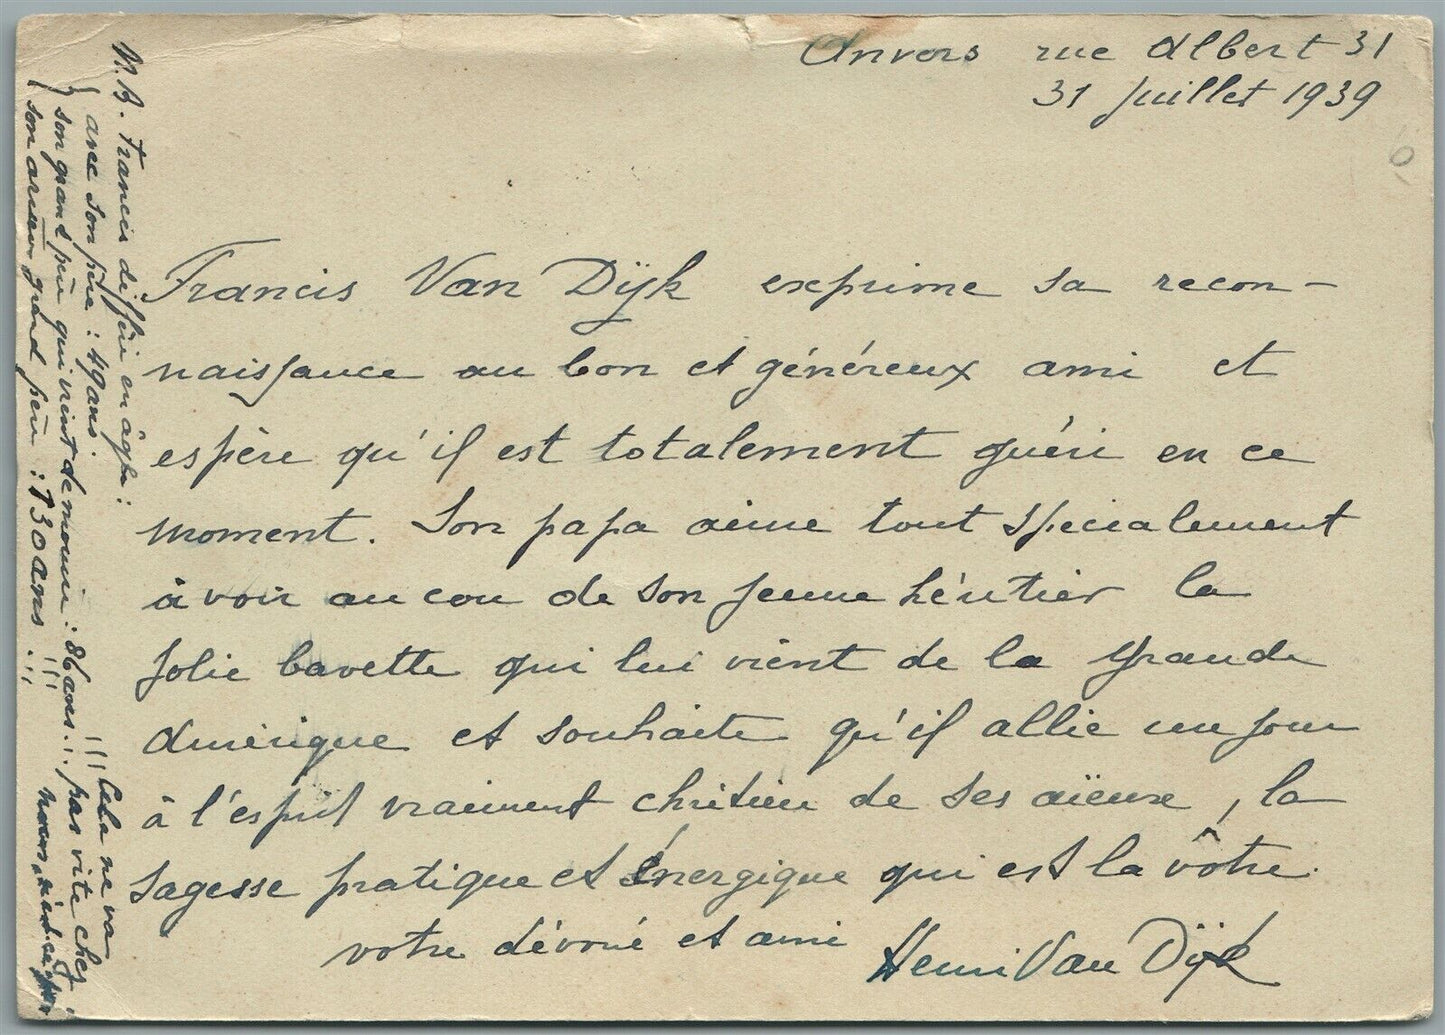 Anvers rue Albert 31
31 Juillet 1939
Francis Van Dÿk exprime sa recon-
naissance au bon et généreux ami et
espère qu'il est totalement guéri en ce
moment. Son papa aime tout spécialement
à voir au cou de son jeune héritier la
jolie bavette qui lui vient de la grande
Amérique et souhaite qu'il allie un jour
à l'esprit vraiment chrétien de ses aïeux, la
sagesse pratique et énergique qui est la vôtre.
votre dévoué et ami Henri Van Dÿk
N.B. Francis diffère en âge :
avec son père : 49 ans
son grand père qui vient de mourir : 86 ans !!!
son arrière grand père : 130 ans !!!
!!! Cela ne va
pas vite chez
nous,